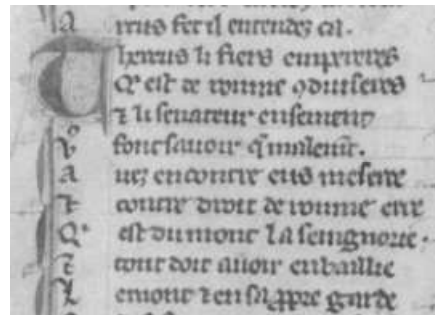 A irus fet il entendez ca.
T hereus li fiers empereres
Q̃ est de romme ꝯduiseres
⁊ li senateur ensement
V font sauoir q̃ malement.
A uez encontre eus meserre
Et contre droit de romme erre
Q' est du mont la seingnorie.
⁊ tout doit auoir en baillie
L emont ⁊ en sa ꝓpre garde